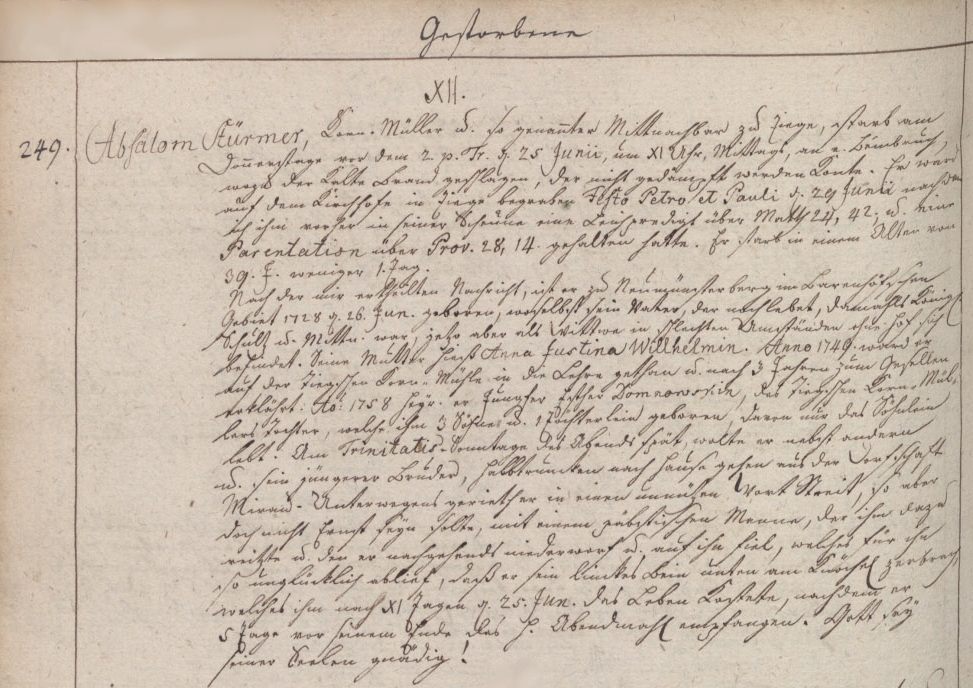 Gestorbene
XII.
249. Absalom Stürmer, Korn-Müller u. so genannter Mittnachbar zu Ziege, starb am
Donnerstage vor dem 2. p. Tr. d. 25 Junii, um XI Uhr, Mittags, an e. Beinbruch,
wozu der Kalte Brand geschlagen, der nicht gedämpft werden konte. Er ward
auf dem Kirchhofe in Ziege begraben Festo Petro et Pauli d. 29 Junii nachdem
ich ihm vorher in seiner Scheune eine Leichpredigt über Matth 24, 42. u. eine
Parentation über Prov. 28, 14. gehalten hatte. Er starb in einem Alter von
39. J. weniger 1. Tag.
Nach der mir ertheilten Nachricht, ist er zu Neumünsterberg im Bärenhöfschen
Gebiet 1728 d. 26. Jun. geboren, woselbst sein Vater, der noch lebet, damahls Königl
Schultz u. Mittn. war, jetzo aber als Wittwer in schlechten Umständen ohne Hof sich
befindet. Seine Mutter hiess Anna Justina Willhelmin. Anno 1749. ward er
auf der Ziegschen Korn-Mühle in die Lehre gethan u. nach 3 Jahren zum Gesellen
erklährt. Ao: 1758 heyr. er Jungfer Esther Domnowskin, des Ziegschen Korn-Mül-
lers Tochter, welche ihm 3 Söhne u. 1 Töchterlein geboren, davon nur das Söhnlein
lebt. Am Trinitatis-Sonntage des Abends spät, wolte er nebst andern
u. sein jüngerer Bruder, halbtruncken nach Hause gehen aus der Dorfschaft
Mirau. Unterwegens geriethe er in einen unnützen Wort Streit, so aber
doch nicht Ernst seyn solte, mit einem päbstischen Manne, der ihn dazu
reitzte u. den er nachgehends niederworf u. auf ihn fiel, welches für ihn
so unglücklich ablief, daß er sein linckes Bein unten am Knöchel zerbrach,
welches ihm nach XI Tagen d. 25. Jun. das Leben kostete, nachdem er
5 Tage vor seinem Ende das h. Abendmahl empfangen. Gott sey
seiner Seelen gnädig!